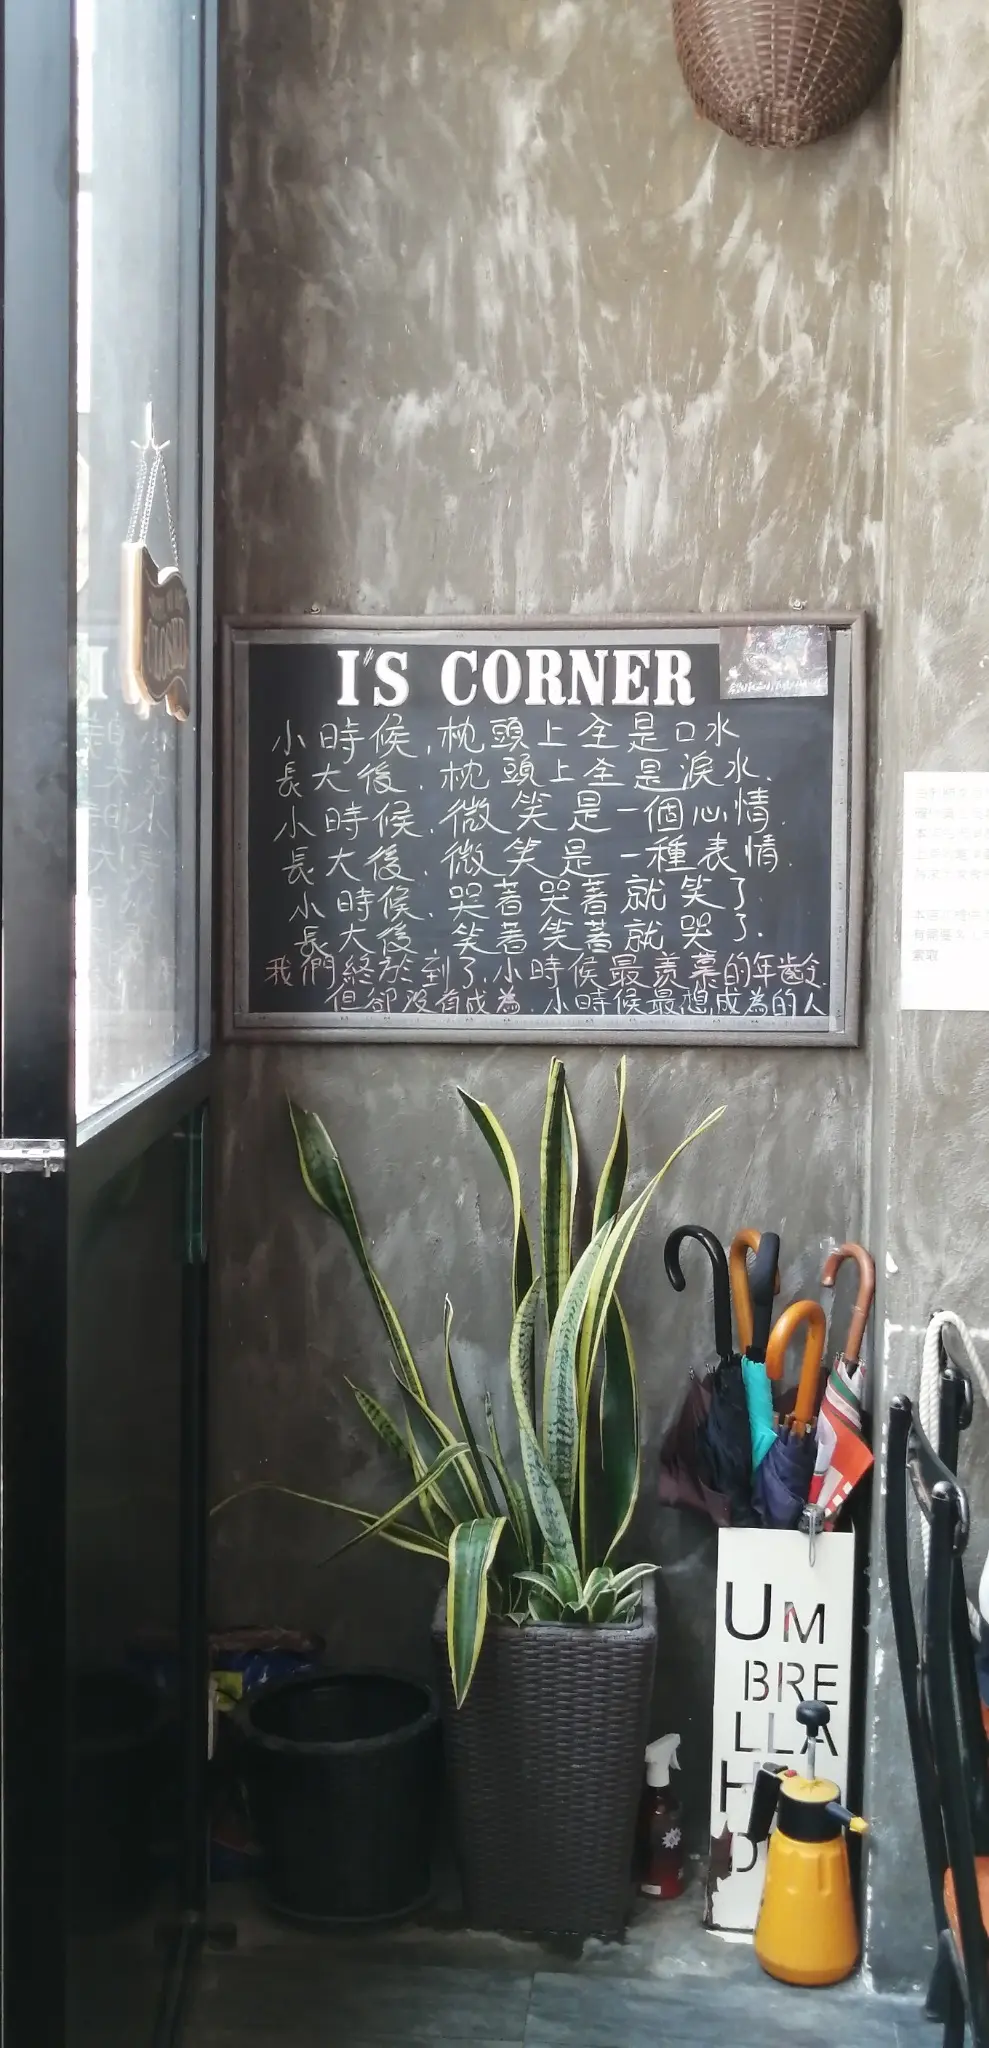 I'S CORNER
小時候,枕頭上全是口水
長大後,枕頭上全是淚水.
小時候,微笑是一個心情.
長大後,微笑是一種表情.
小時候,哭著哭著就笑了.
長大後,笑著笑著就哭了.
我們終於到了,小時候最羨慕的年齡.
但卻沒有成為,小時候最想成為的人
CLOSED
UM
BRE
LLA